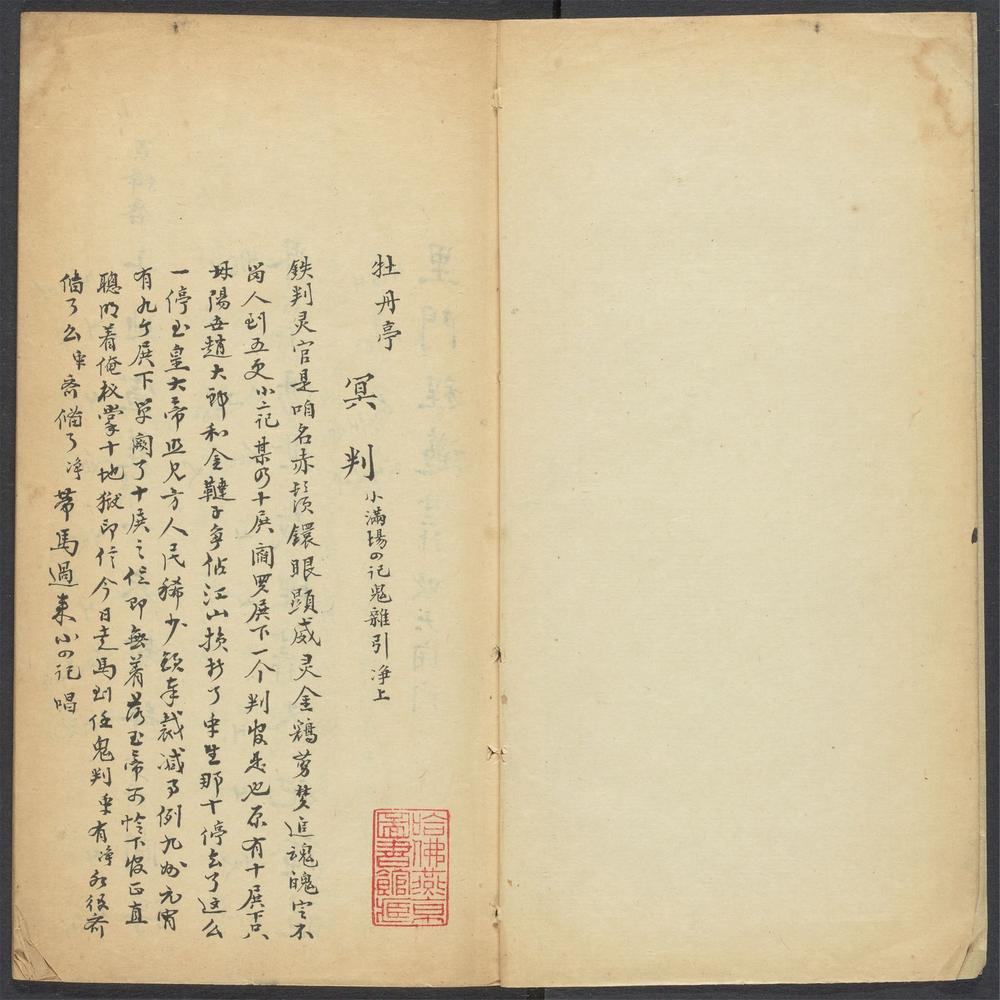 牡丹亭
冥判 小滿場四記鬼雜引淨上
鉄判灵官是咱名赤鬚鐶眼顯威灵金鷄剪夢追魂魄定不
人到五更小二記某乃十殿閻罗殿下一个判官是也原有十殿下只
陽世趙大郎和金韃子争佔江山損折了衆生那十停去了这么
一停玉皇大帝照見方人民稀少欽奉裁减事例九州
有九个殿下单闕了十殿之位即無着落玉帝可怜下官正直
聰明着俺权掌十地獄印信今日走馬到任鬼判衆有淨齐
俻了么衆齐俻了淨帶馬過来小四记唱
哈佛燕京圖書館